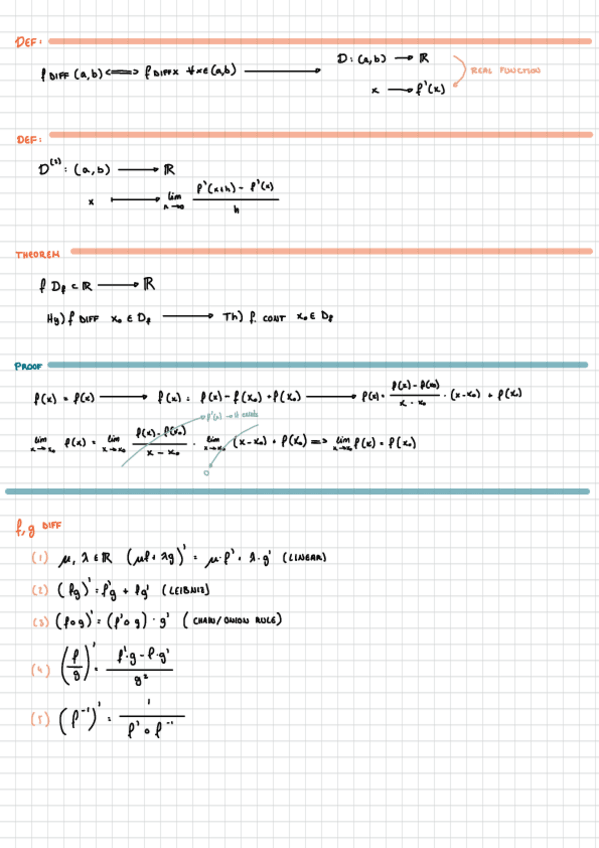 DEF:
f DIFF (a,b) <=> f DIFF x ∀x∈(a,b) ⟶ D: (a,b) ⟶ ℝ
x ⟶ f'(x)
REAL FUNCTION
DEF:
D⁽²⁾: (a,b) ⟶ ℝ
x ⟼ lim h→0 (f'(x+h) - f'(x)) / h
THEOREM
f D_f ⊂ ℝ ⟶ ℝ
Hy) f DIFF x₀ ∈ D_f ⟶ Th) f. CONT x₀ ∈ D_f
PROOF
f(x) = f(x) ⟶ f(x) = f(x) - f(x₀) + f(x₀) ⟶ f(x) = (f(x) - f(x₀)) / (x - x₀) · (x - x₀) + f(x₀)
lim x→x₀ f(x) = lim x→x₀ (f(x) - f(x₀)) / (x - x₀) · lim x→x₀ (x - x₀) + f(x₀) => lim x→x₀ f(x) = f(x₀)
0
f, g DIFF
(1) μ, λ ∈ ℝ (μf + λg)' = μ·f' + λ·g' (LINEAR)
(2) (fg)' = f'g + fg' (LEIBNIZ)
(3) (f∘g)' = (f'∘g) · g' (CHAIN/ONION RULE)
(4) (f/g)' = (f'·g - f·g') / g²
(5) (f⁻¹)' = 1 / (f' ∘ f⁻¹)